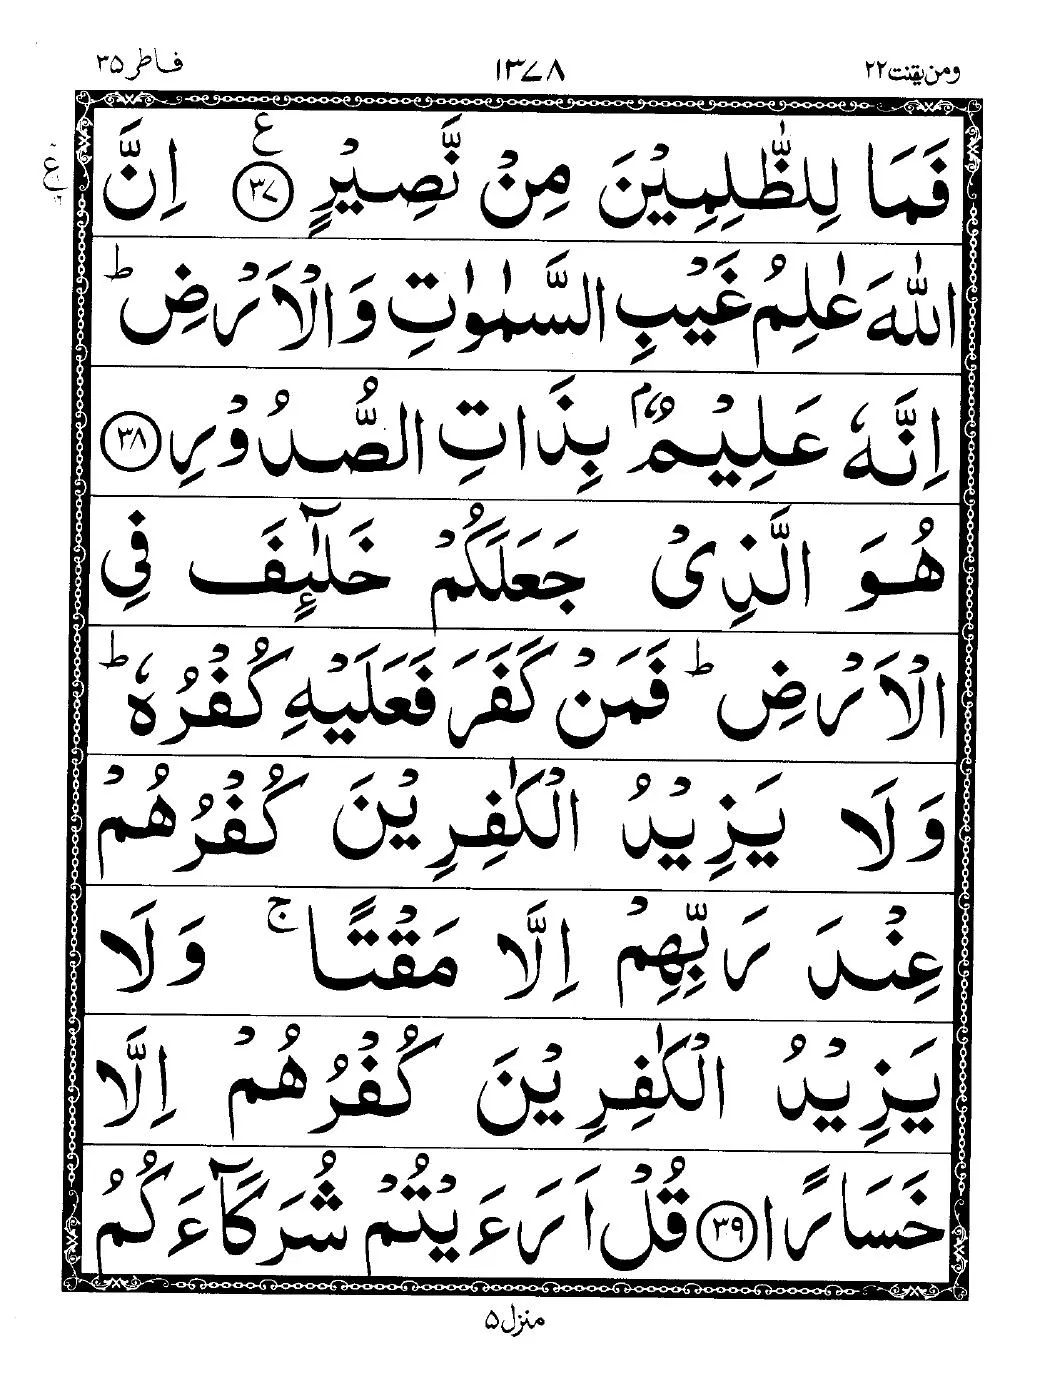 ومن یقنت ۲۲ ۱۳۷۸ فاطر ۳۵
فَمَا لِلظّٰلِمِيْنَ مِنْ نَّصِيْرٍ ﴿۳۷﴾ ع اِنَّ
اللّٰهَ عٰلِمُ غَيْبِ السَّمٰوٰتِ وَالْاَرْضِ ؕ
اِنَّهٗ عَلِيْمٌۢ بِذَاتِ الصُّدُوْرِ ﴿۳۸﴾
هُوَ الَّذِىْ جَعَلَكُمْ خَلٰٓئِفَ فِى
الْاَرْضِ ؕ فَمَنْ كَفَرَ فَعَلَيْهِ كُفْرُهٗ ؕ
وَلَا يَزِيْدُ الْكٰفِرِيْنَ كُفْرُهُمْ
عِنْدَ رَبِّهِمْ اِلَّا مَقْتًا ۚ وَلَا
يَزِيْدُ الْكٰفِرِيْنَ كُفْرُهُمْ اِلَّا
خَسَارًا ﴿۳۹﴾ قُلْ اَرَءَيْتُمْ شُرَكَآءَكُمُ
منزل ۵